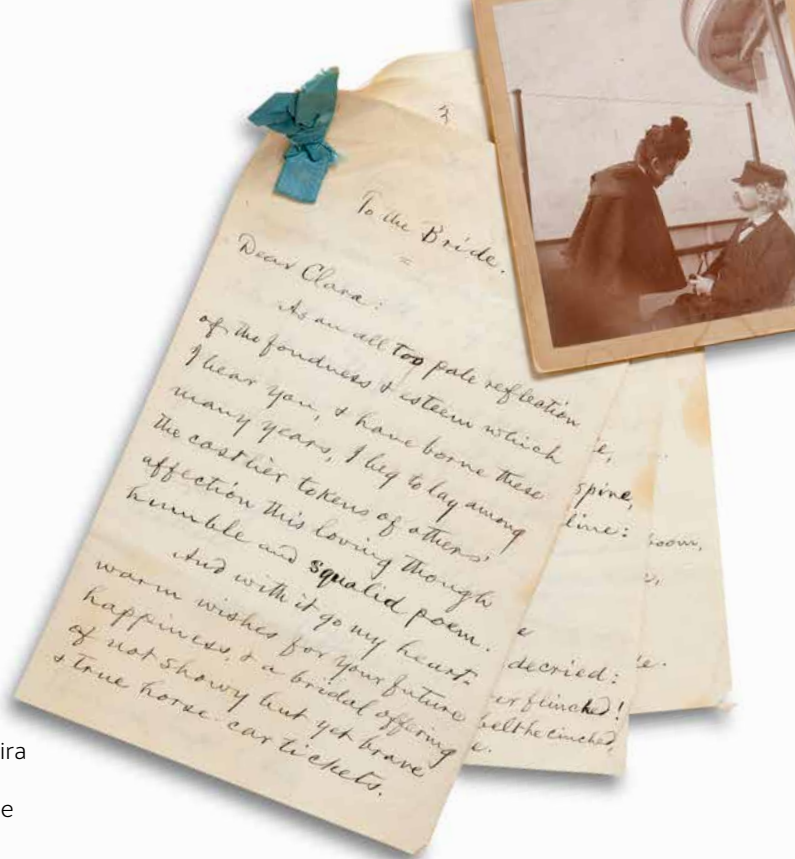 3
To the Bride.
Dear Clara:
As an all too pale reflection
of the fondness & esteem which
I bear you, & have borne these
many years, I beg to lay among
the costlier tokens of others'
affection this loving though
humble and squalid poem.
And with it go my heart-
warm wishes for your future
happiness, & a bridal offering
of not showy but yet brave
& true horse-car tickets.
e,
spine,
line:
decried:
er flinched!
belt he cinched,
e.
boom,
e.
ira
e